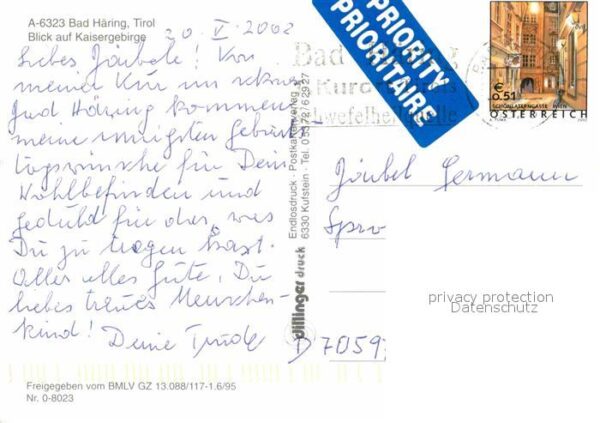 A-6323 Bad Häring, Tirol
Blick auf Kaisergebirge
20. V. 2002
Liebes Järbele! Von
meiner Kur im schönen
Bad Häring kommen
meine innigsten Geburts-
tagswünsche für Dein
Wohlbefinden und
Geduld für das, was
Du zu tragen hast.
Alles alles Gute, Du
liebes treues Menschen-
kind! Deine Trude
Freigegeben vom BMLV GZ 13.088/117-1.6/95
Nr. 0-8023
Endlosdruck · Postkartenverlag
6330 Kufstein · Tel. 0 53 72 / 6 29 27
dillinger druck
PRIORITY
PRIORITAIRE
Bad Häring
Kurort
Schwefelheilquelle
€ 0.51
SCHÖNLATERNGASSE WIEN
ÖSTERREICH
Järbel Germann
Spro
D 7059
privacy protection
Datenschutz